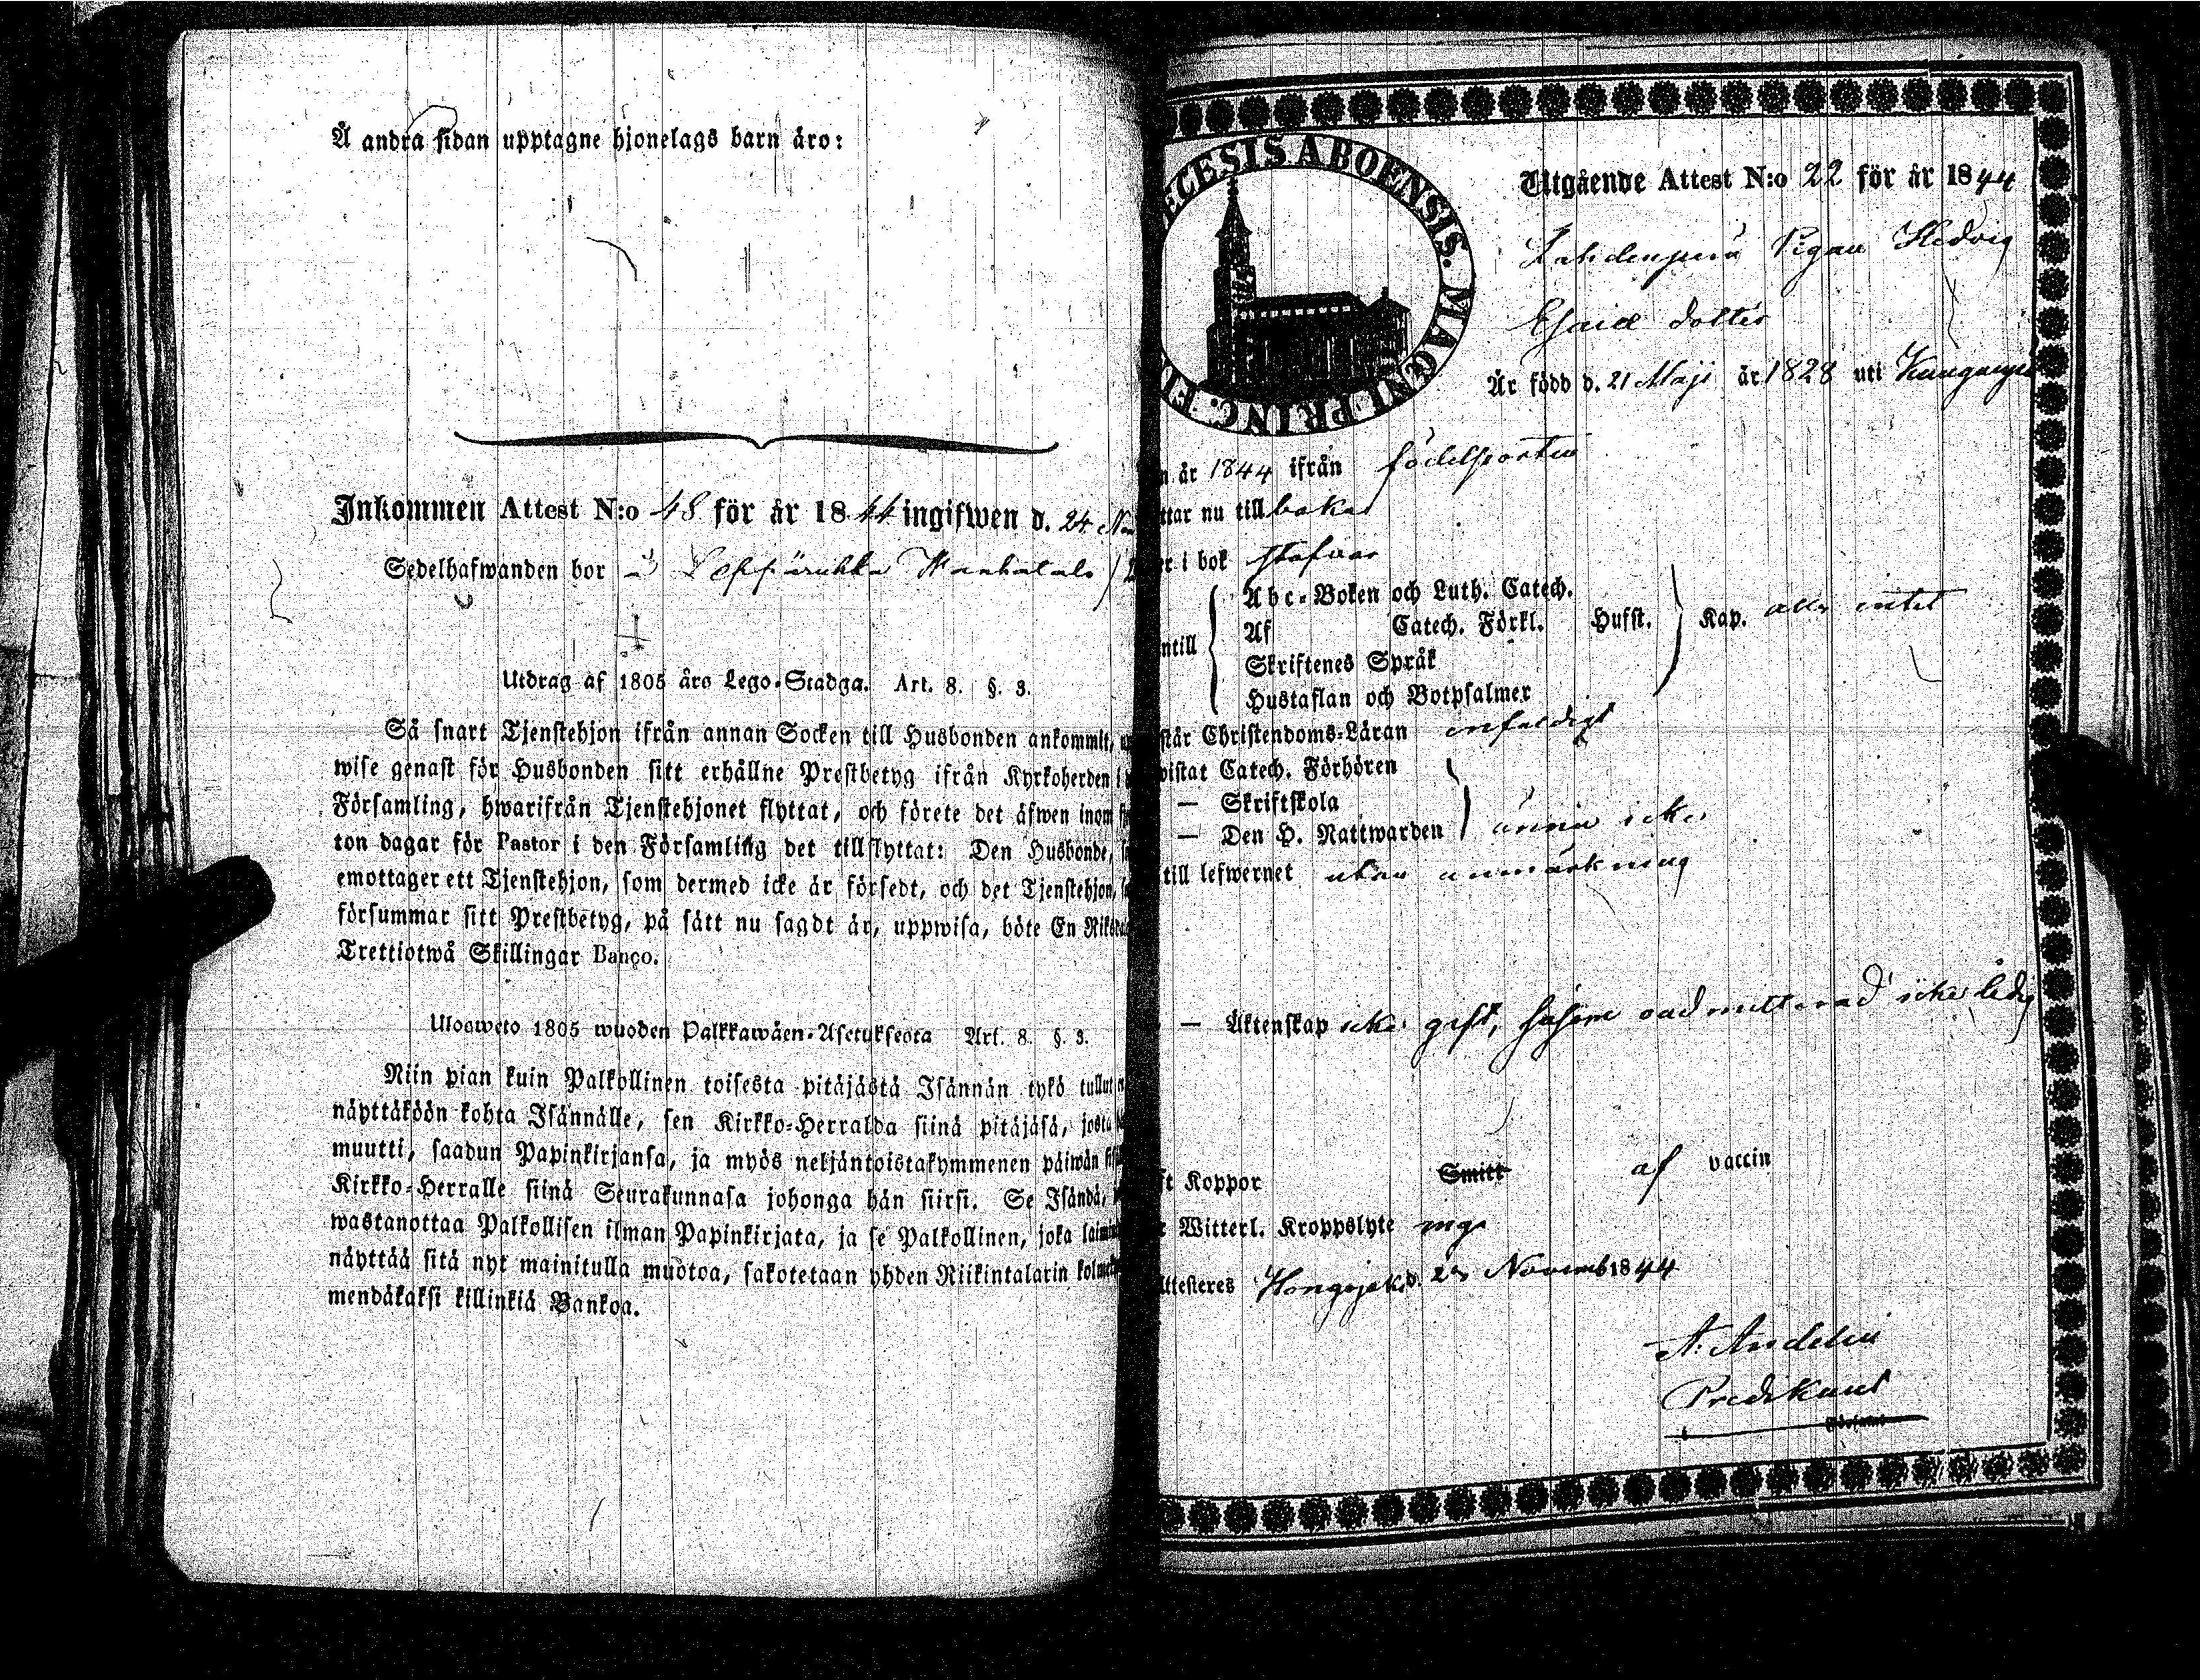 Å andra sidan upptagne hjonelags barn äro:
Inkommen Attest N:o 48 för år 1844 ingifwen d. 24
Sedelhafwanden bor å
Utdrag af 1805 års Lego-Stadga. Art. 8. §. 3.
Så snart Tjenstehjon ifrån annan Socken till Husbonden ankommit,
wise genast för Husbonden sitt erhållne Prestbetyg ifrån Kyrkoherden i
Församling, hwarifrån Tjenstehjonet flyttat, och förete det äfwen inom
ton dagar för Pastor i den Församling det tillflyttat: Den Husbonde,
emottager ett Tjenstehjon, som dermed icke är försedt, och det Tjenstehjon,
försummar sitt Prestbetyg, på sätt nu sagdt är, uppwisa, böte En
Trettiotwå Skillingar Banco.
Ulosweto 1805 wuoden Palkkawäen-Asetuksesta Art. 8. §. 3.
Niin pian kuin Palkollinen toisesta pitäjästä Isännän tykö tullut
näyttäköön kohta Isännälle, sen Kirkko-Herralda siinä pitäjäsä, josta
muutti, saadun Papinkirjansa, ja myös neljäntoistakymmenen päiwän
Kirkko-Herralle siinä Seurakunnasa johonga hän siirsi. Se Isändä,
wastanottaa Palkollisen ilman Papinkirjata, ja se Palkollinen, joka
näyttää sitä nyt mainitulla muotoa, sakotetaan yhden Riikintalarin
mendäkaksi killinkiä Bankoa.
ECESIS ABOENSIS. MAGNI PRINC. FI
Utgående Attest N:o 22 för år 1844
Lahdenperä Pigan Hedvig
Esaiæ dotter
Är född d. 21 Maji år 1828 uti
år 1844 ifrån födelseorten
nu tillbaka
i bok
Abc-Boken och Luth. Catech.
Af Catech. Förkl. Hufst. Kap. alls intet
Skriftenes Språk
Hustaflan och Botpsalmer
Christendoms-Läran enfaldigt
Catech. Förhören
— Skriftskola
— Den H. Nattwarden ännu icke
till lefwernet utan anmärkning
— Äktenskap icke gift, ledig
Koppor Smitt af vaccin
Witterl. Kroppslyte
Novemb 1844
A. Andelin
Predikant